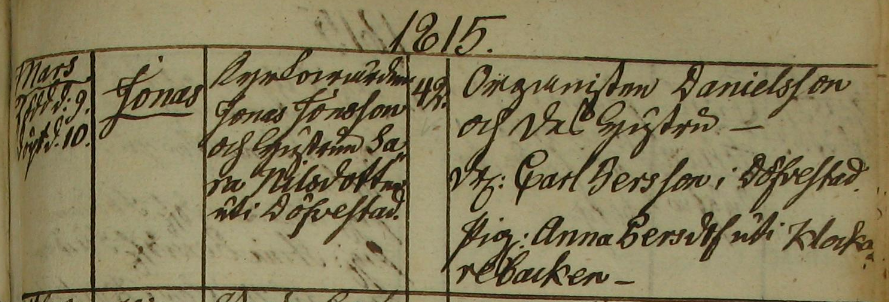 1815.
Mars
Född d: 9.
Döpt d: 10.
Jonas
Kyrkowärden
Jonas Jönsson
och Hustrun Sa
ra Nilsdotter
uti Döfvestad.
42.
Organisten Danielsson
och dess Hustru —
Dr: Carl Persson i Döfvestad.
Pig: Anna Persdtr uti Klocka
rebacken —